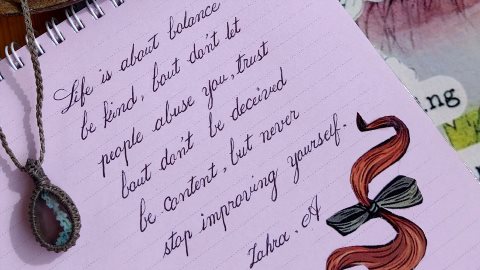 Life is about balance
be kind, bout don't let
people abuse you, trust
bout don't be deceived
be content, but never
stop improving yourself.
Zahra. A
ng